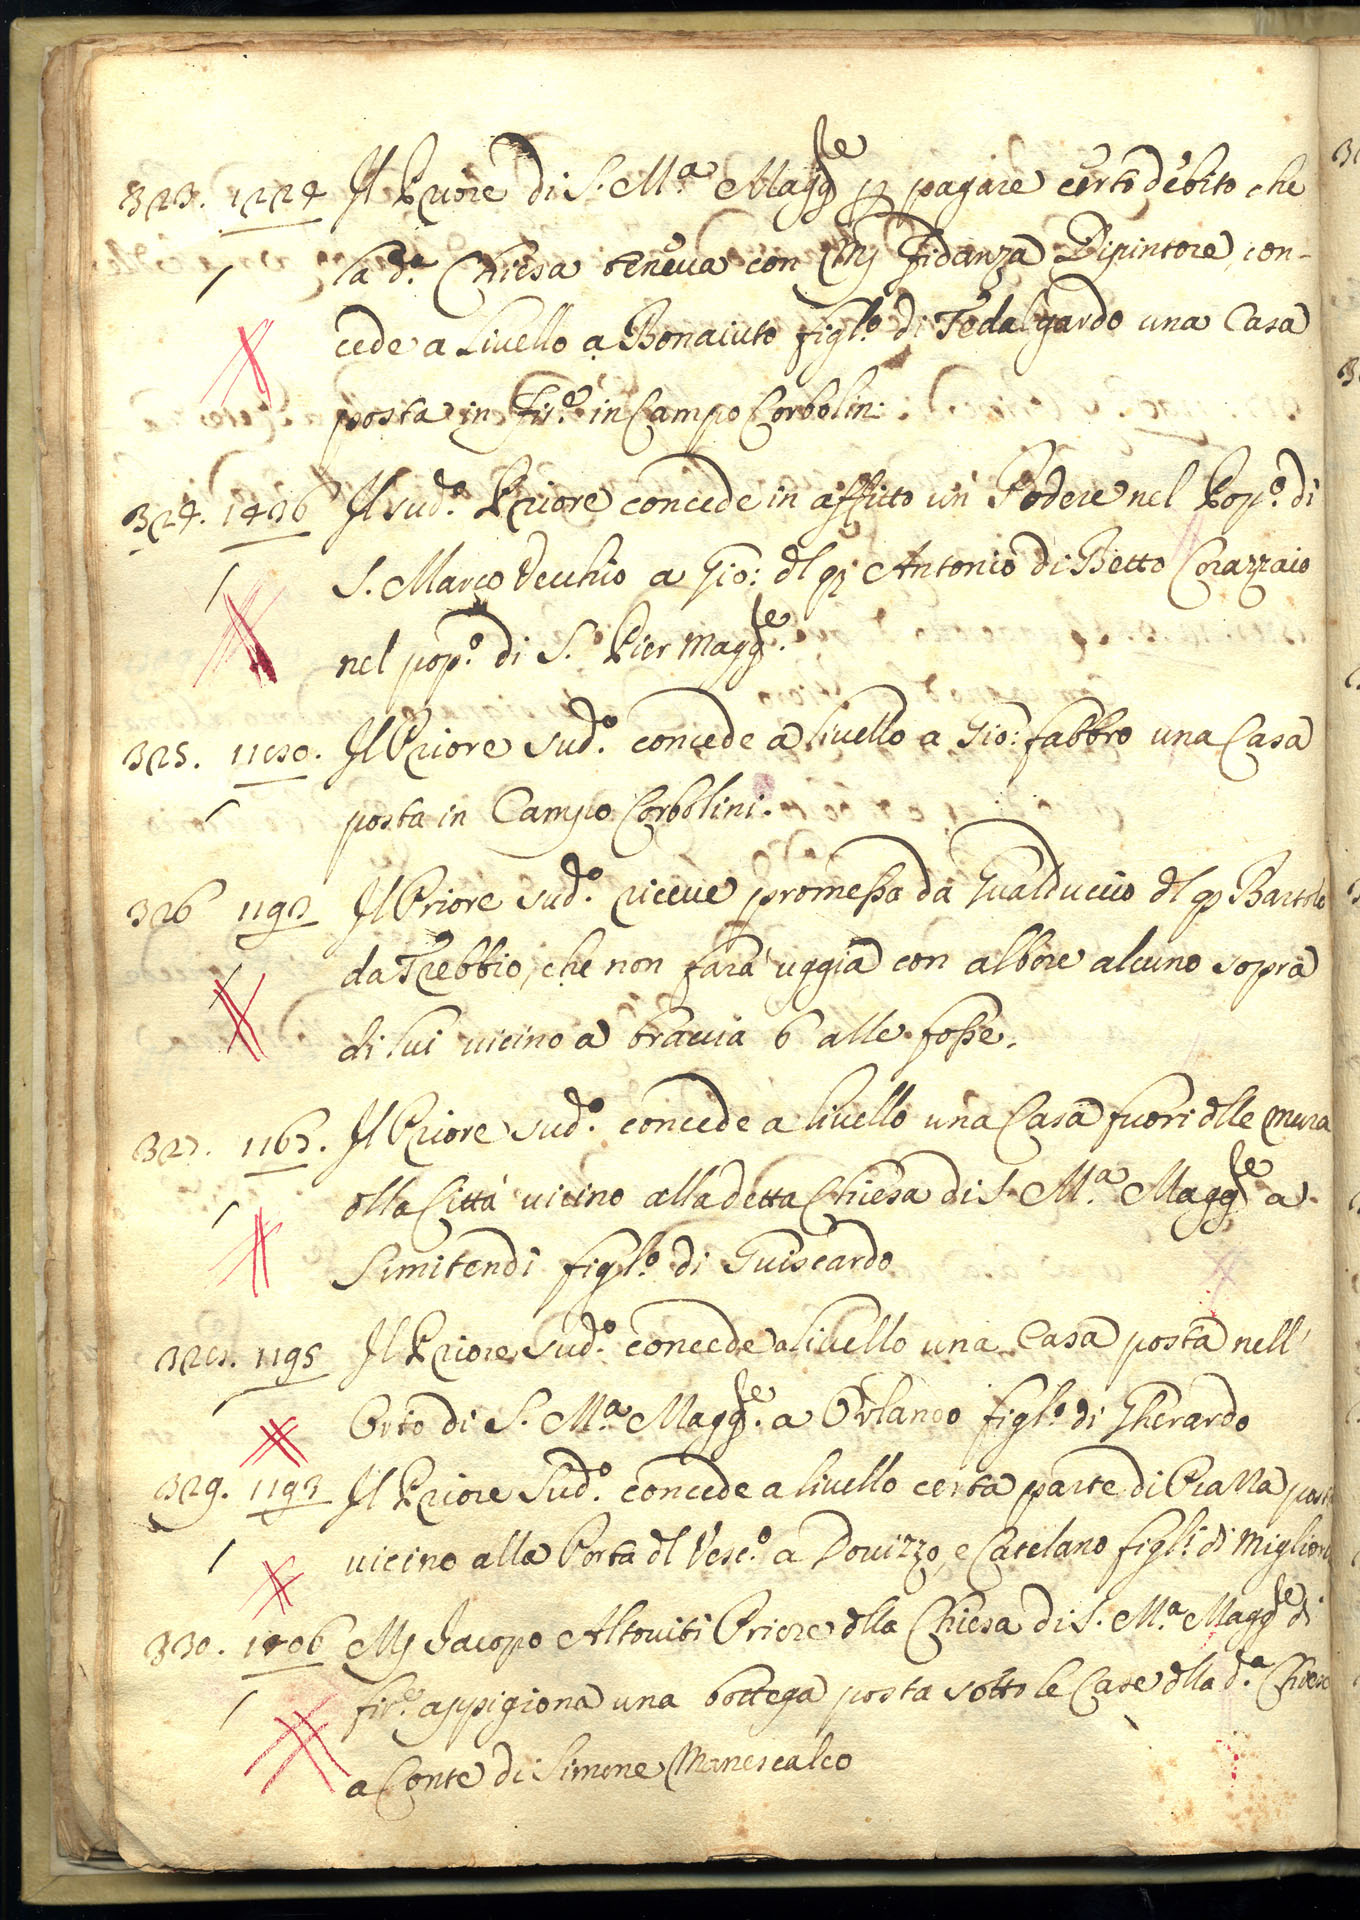 323. 1224 Il Priore di S. M.ª Magg.re p pagare certo debito che
la d.ª Chiesa teneva con Mṣ Fidanza Dipintore, con-
cede a Livello a Bonaiuto figl.º di Tedalgardo una Casa
posta in Fir.e in Campo Corbolin:
324. 1436 Il sud.º Priore concede in affitto un Podere nel Pop.º di
S. Marco Vecchio a Gio: dl q Antonio di Betto Corazzaio
nel pop.º di S. Pier Magg.re.
325. 1180. Il Priore sud.º concede a livello a Gio: fabbro una Casa
posta in Campo Corbolini.
326 1193 Il Priore sud.º riceve promessa da Gualduccio dl q Bartolo
da Trebbio, che non farà uggia con albore alcuno sopra
di lui vicino a braccia 6 alle fosse.
327. 1167. Il Priore sud.º concede a livello una Casa fuori dlle mura
dlla Città vicino alla detta Chiesa di S. M.ª Magg.re a
Simitendi figl.º di Guiscardo
328. 1195 Il Priore sud.º concede a livello una Casa posta nell'
Orto di S. M.ª Magg.re. a Orlando figl.º di Gherardo
329. 1193 Il Priore Sud.º concede a livello certa parte di Piazza posta
vicino alla Porta dl Vesc.º a Dovizzo, e Catelano figl.i di Migliore
330. 1406 Mṣ Jacopo Altoviti Priore dlla Chiesa di S. M.ª Magg.re di
fir.e appigiona una bottega posta sotto le Case dlla d.ª Chiesa
a Conte di Simone Manescalco